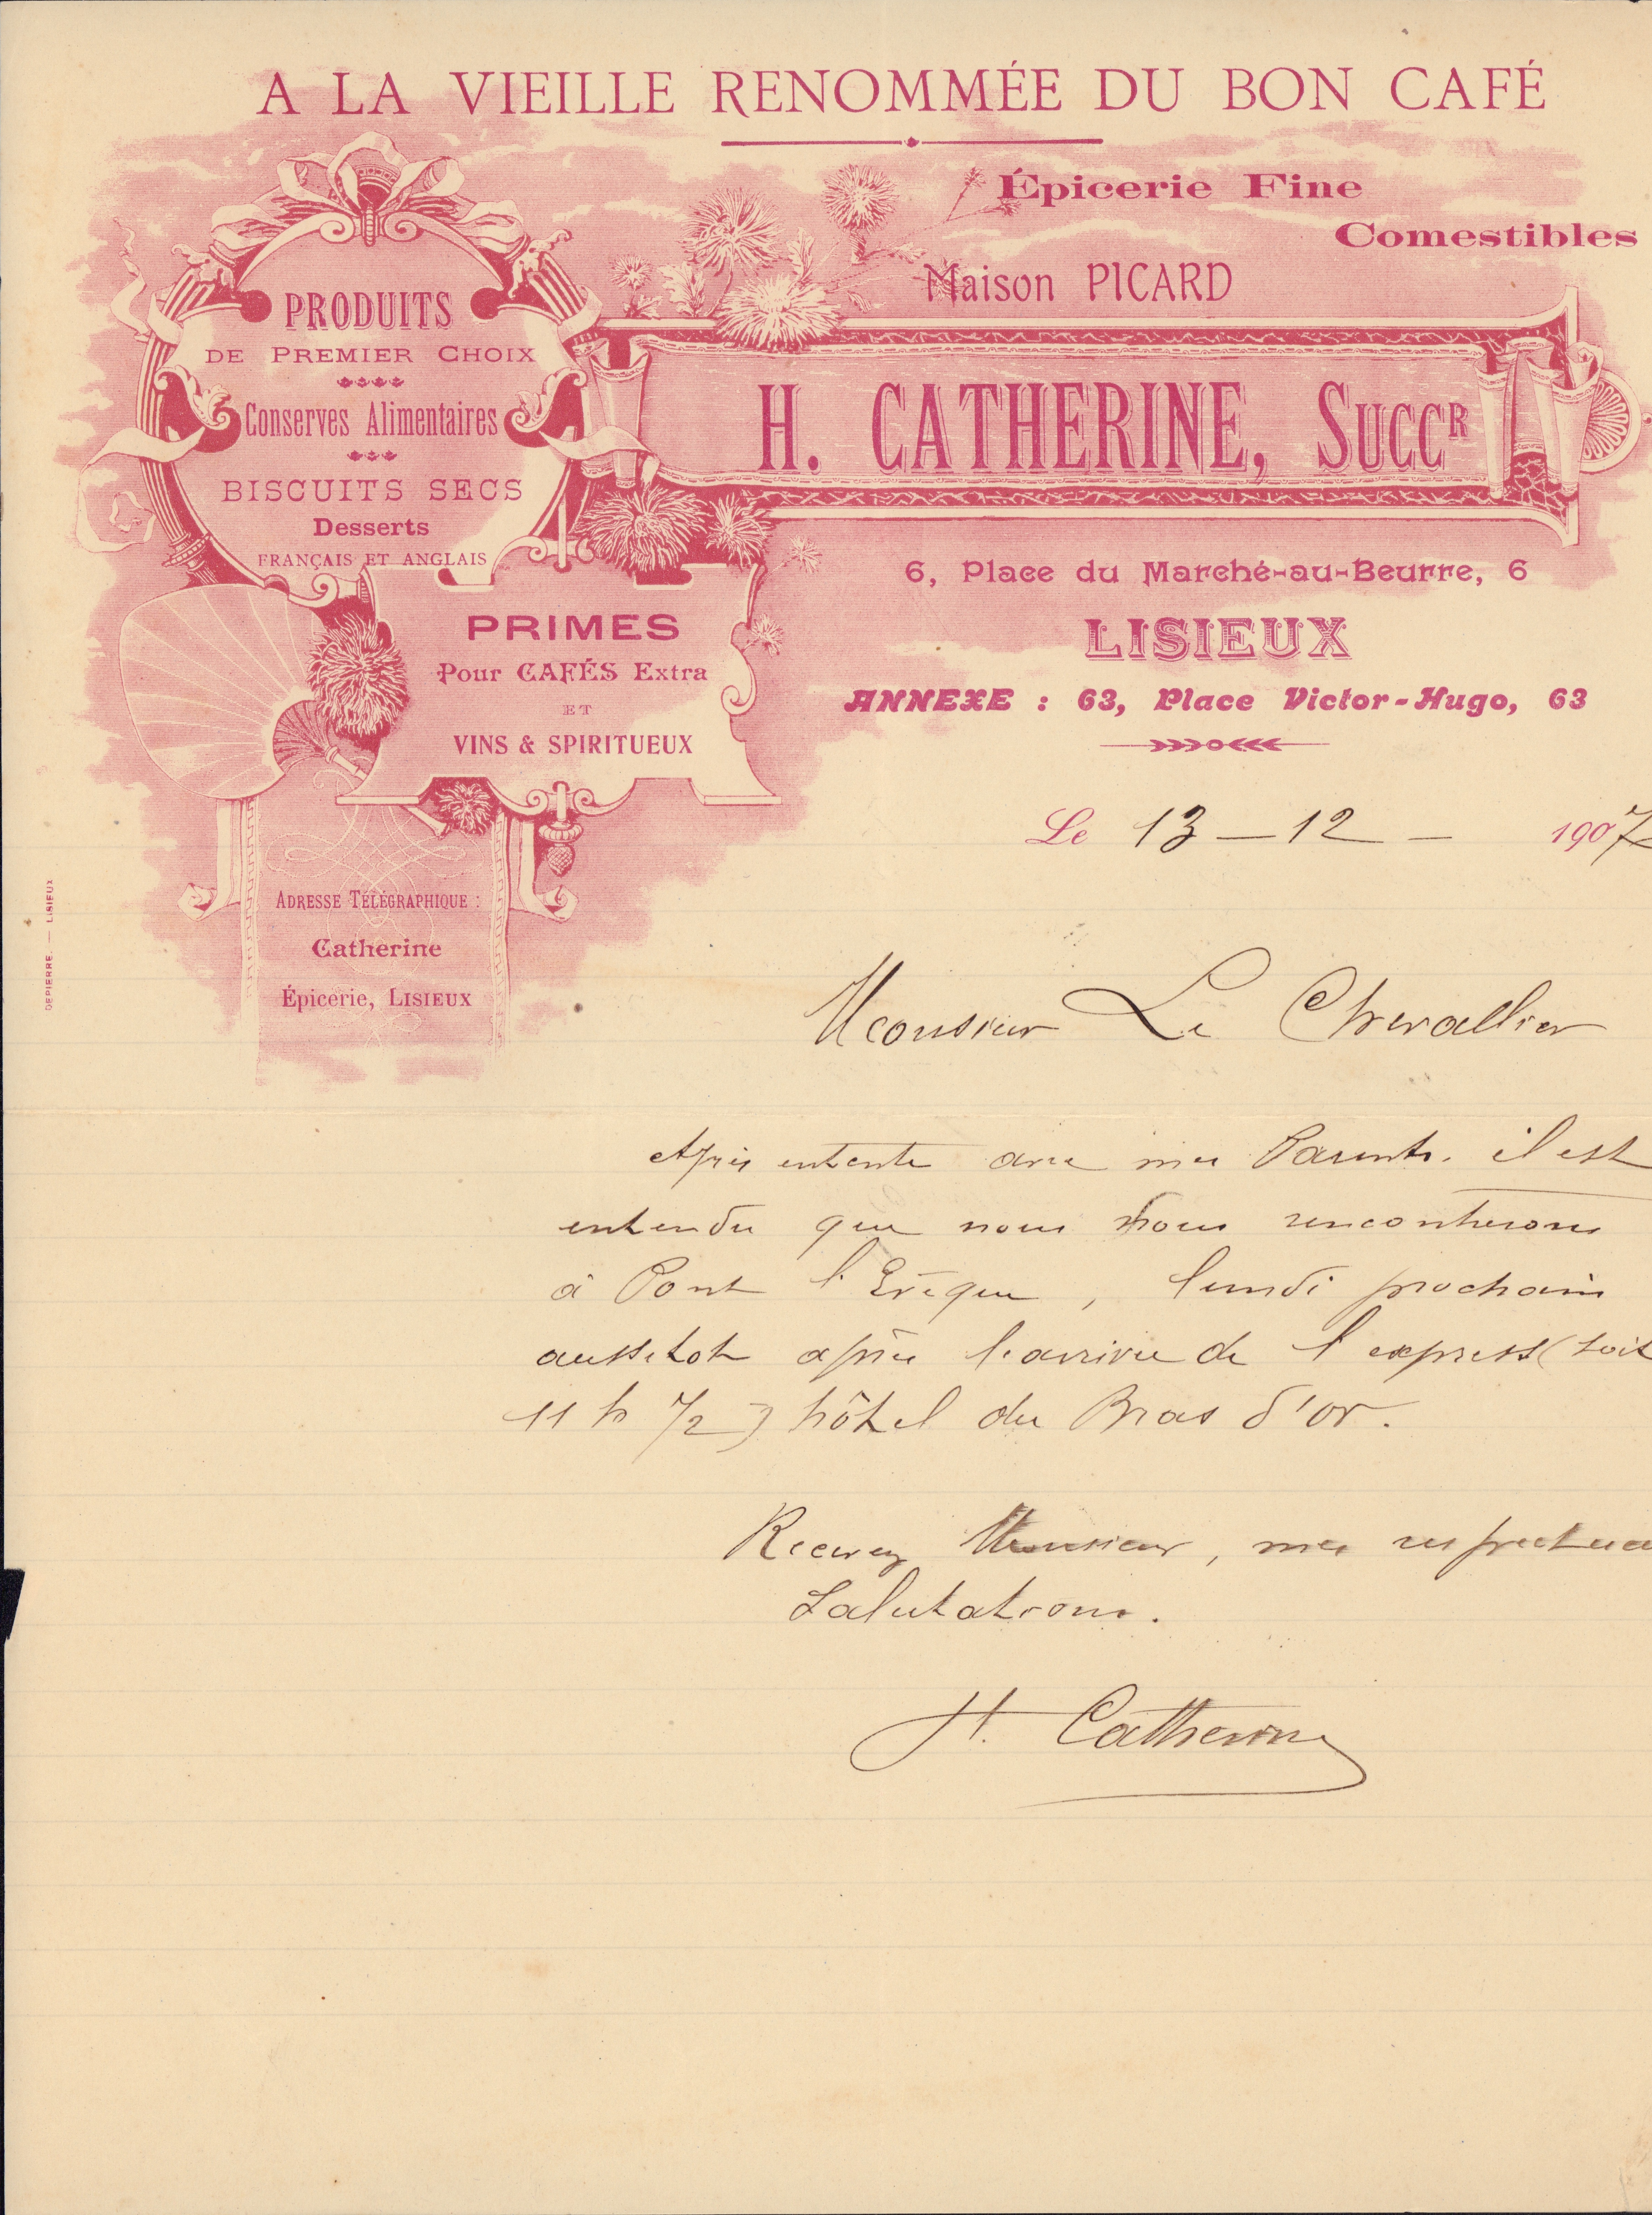 A LA VIEILLE RENOMMÉE DU BON CAFÉ
Épicerie Fine
Comestibles
Maison PICARD
H. CATHERINE, SUCCR
6, Place du Marché-au-Beurre, 6
LISIEUX
ANNEXE : 63, Place Victor-Hugo, 63
PRODUITS
DE PREMIER CHOIX
Conserves Alimentaires
BISCUITS SECS
Desserts
FRANÇAIS ET ANGLAIS
PRIMES
Pour CAFÉS Extra
ET
VINS & SPIRITUEUX
ADRESSE TÉLÉGRAPHIQUE :
Catherine
Épicerie, LISIEUX
DEPIERRE. — LISIEUX
Le 13 - 12 - 1907
Monsieur Le Chevallier
Après entente avec mes Parents. il est
entendu que nous nous rencontrerons
à Pont l'Evêque, lundi prochain
aussitot après l'arrivée de l'express (soit
11 h 1/2) hôtel du Bras d'or.
Recevez Monsieur, mes respectueu
Salutations.
H. Catherine